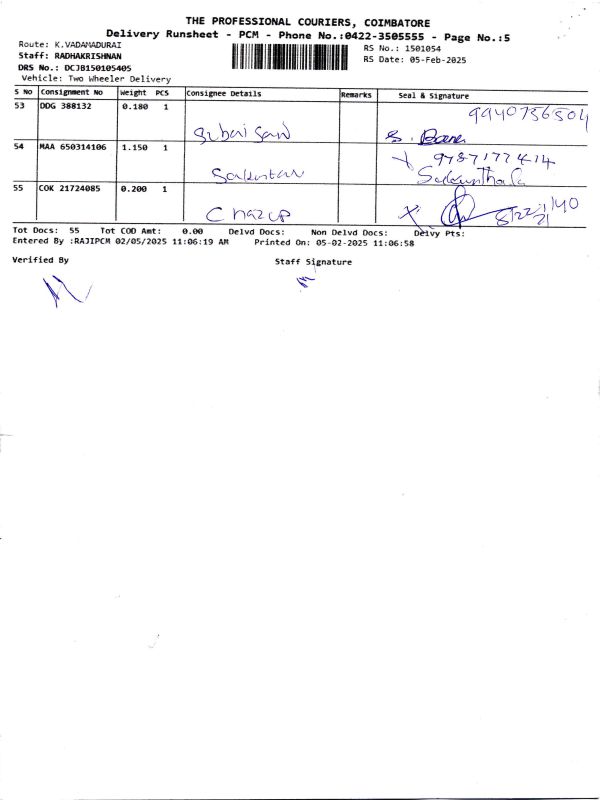 THE PROFESSIONAL COURIERS, COIMBATORE
Delivery Runsheet - PCM - Phone No.:0422-3505555 - Page No.:5
Route: K.VADAMADURAI
RS No.: 1501054
Staff: RADHAKRISHNAN
RS Date: 05-Feb-2025
DRS No.: DCJB150105405
Vehicle: Two Wheeler Delivery
S No Consignment No Weight PCS Consignee Details Remarks Seal & Signature
53 DDG 388132 0.180 1
9940756504
54 MAA 650314106 1.150 1
9787177414
Sakunthala
55 COK 21724085 0.200 1
Tot Docs: 55 Tot COD Amt: 0.00 Delvd Docs: Non Delvd Docs: Delvy Pts:
Entered By :RAJIPCM 02/05/2025 11:06:19 AM Printed On: 05-02-2025 11:06:58
Verified By
Staff Signature